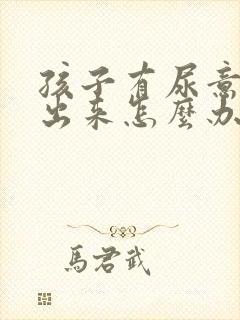 孩子有尿意
出来怎麼办
馬君武